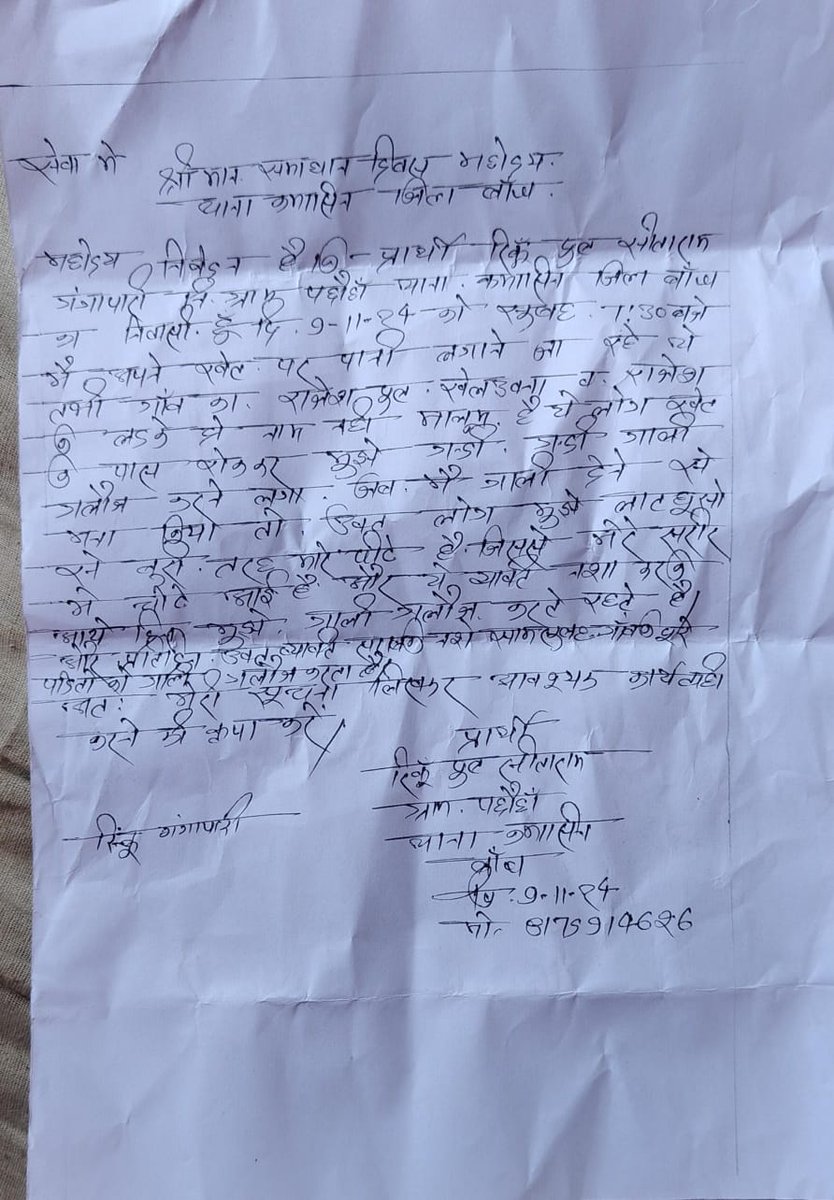 सेवा मे
श्रीमान समाधान दिवस महोदय.
थाना कमासिन जिला बाँदा.
महोदय निवेदन है कि प्रार्थी रिंकू पुत्र सीताराम
गंगापारी नि. ग्राम थाना. कमासिन जिला बाँदा
का निवासी. हूँ दि. 9-11-24 को सुबह. 7:30 बजे
मै अपने खेत. पर पानी लगाने जा रहे थे
तभी गाँव का. राजेश पुत्र. व. राजेश
के लडके जो नाम नही मालूम. है ये लोग खेत
के पास रोककर मुझे गन्दी. गन्दी गाली
गलौज करने लगा. जब. मै गाली देने से
मना किया तो. उक्त लोग मुझे लात घूसो
से बुरी. तरह मारे पीटे है. जिससे मेरे सरीर
मे चोटे आई है. और ये व्यक्ति नशा करके
आये दिन मुझे. गाली गलौज. करते रहते है
और उक्त व्यक्ति नशा गाँव के पूरे
पंडितो को गाली गलौज करता है।
अतः मेरी सूचना लिखकर आवश्यक कार्यवाही
करने की कृपा करें।
प्रार्थी
रिंकू पुत्र सीताराम
ग्राम.
थाना कमासिन
बाँदा
दि. 9-11-24
मो. 8175914626
रिंकू गंगापारी